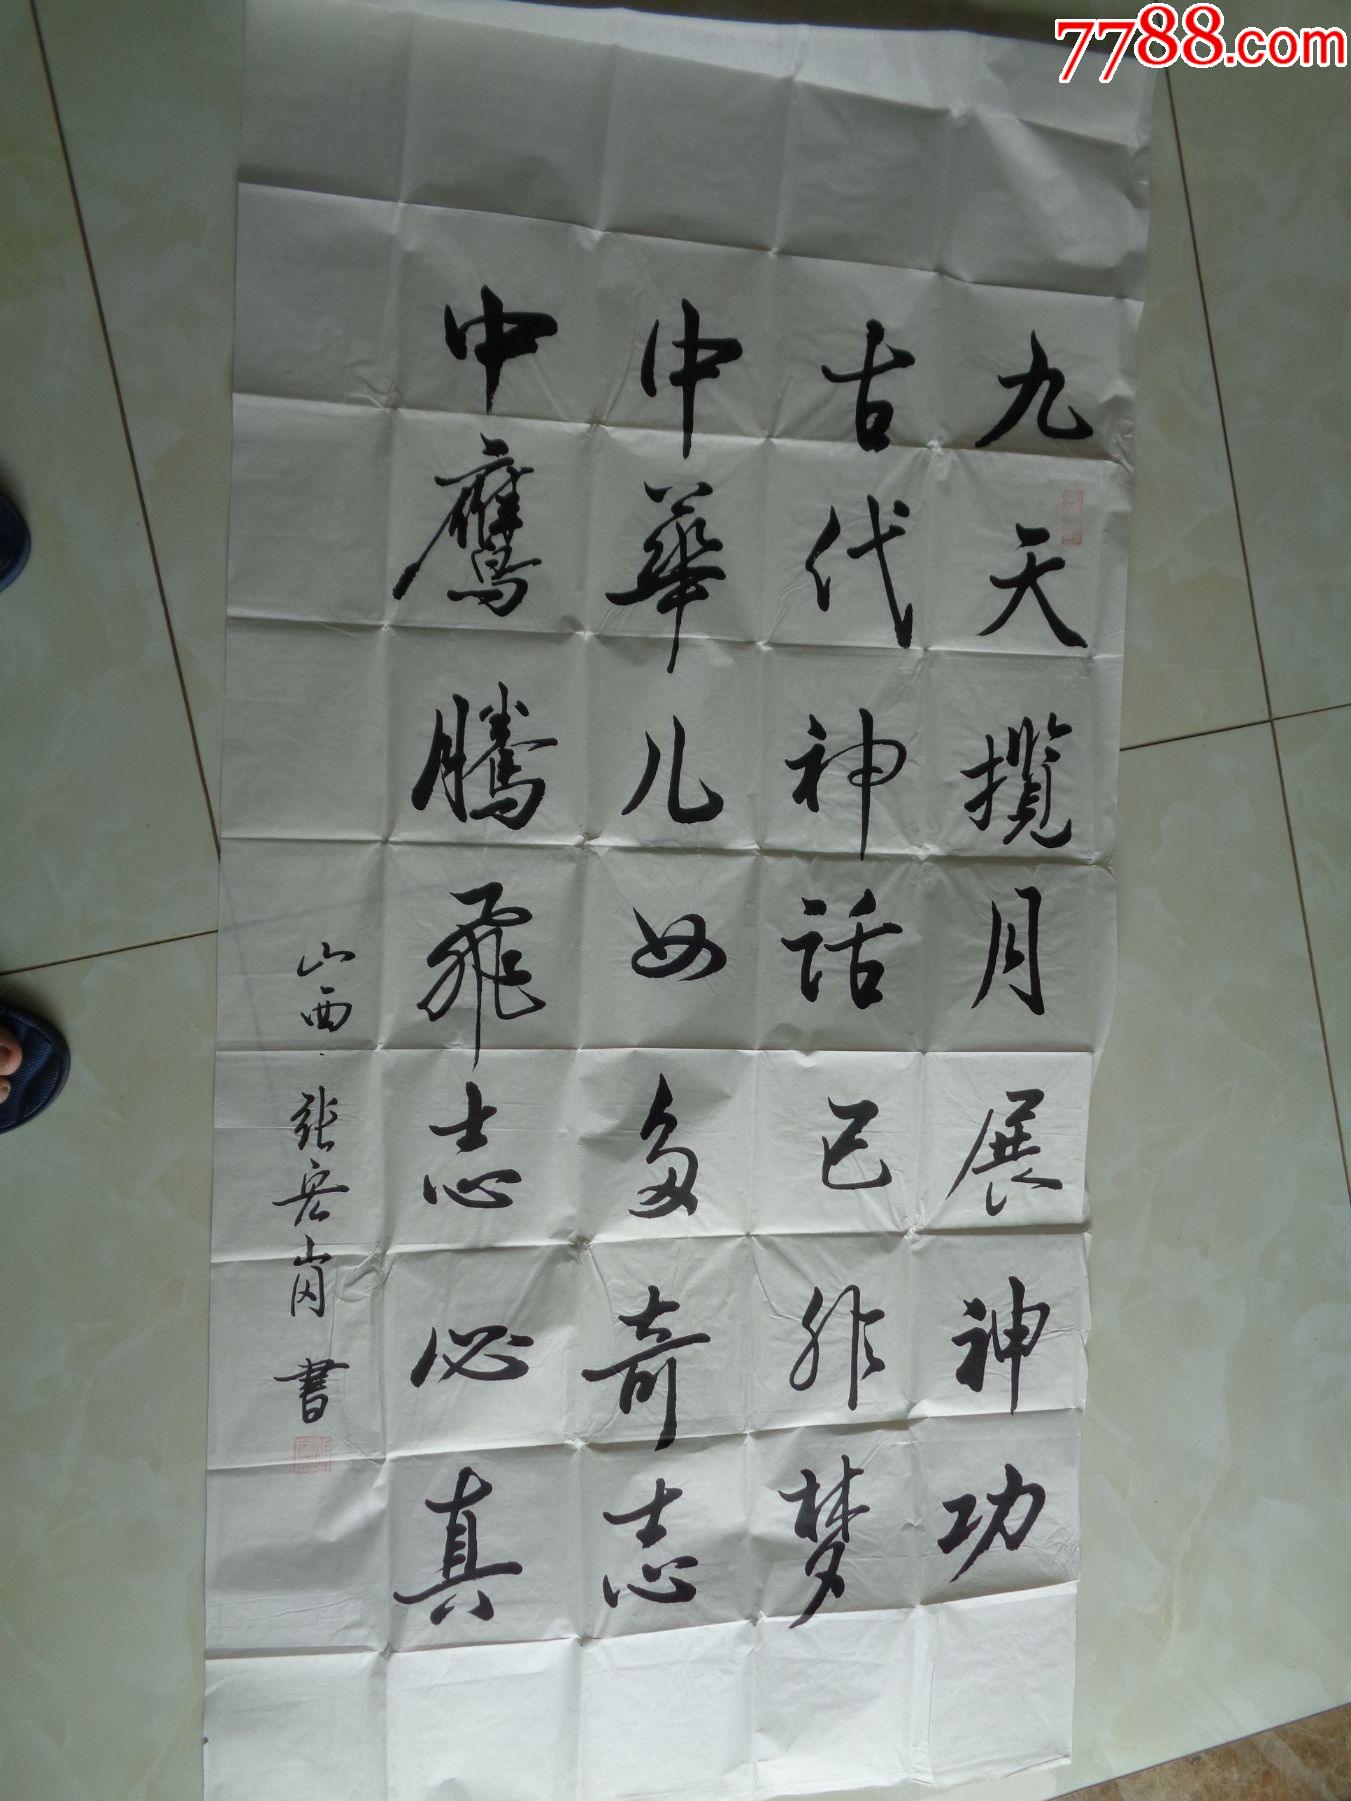 7788.com
九天揽月展神功
古代神话已非梦
中華儿女多奇志
中鷹騰飛志必真
山西·张宏岗書